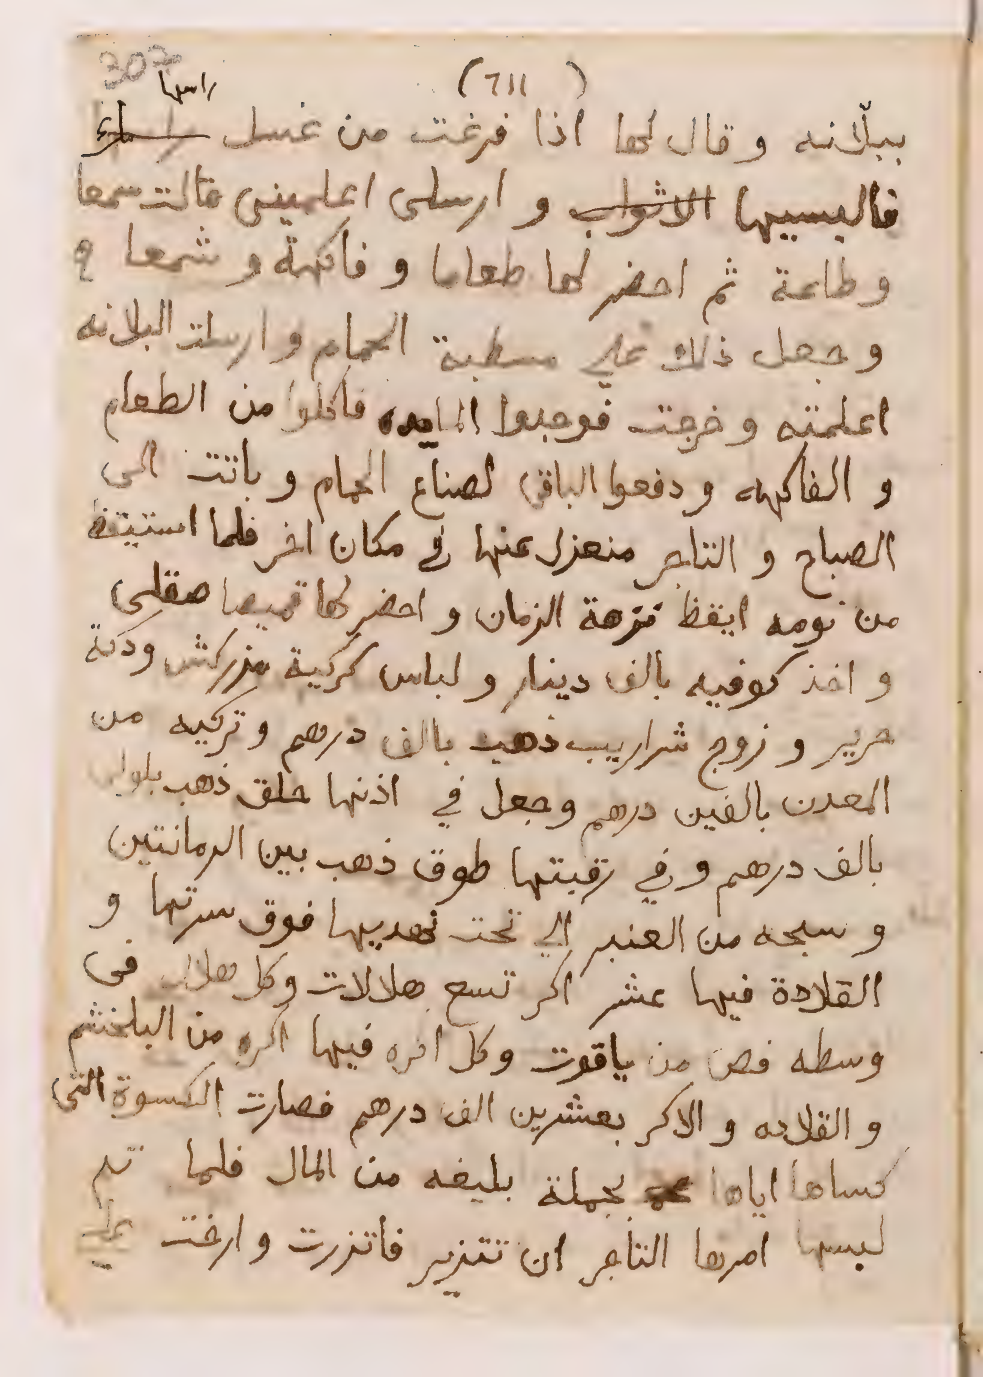 307
(٦١١)
راسها
ببلّانه و قال لها اذا فرغت من غسل
فالبسيها الاثواب و ارسلى اعلمينى قالت سمعا
و طاعة ثم احضر لها طعاما و فاكهة و شمعا
و جعل ذلك على مسطبة الحمام و ارسلت البلانه
اعلمته و خرجت فوجدوا المايده فاكلوا من الطعام
و الفاكهه و دفعوا الباقى لصناع الحمام و باتت الى
الصباح و التاجر منعزل عنها فى مكان اخر فلما استيقظ
من نومه ايقظ نزهة الزمان و احضر لها قميصا صقلى
و اخذ كوفيه بالف دينار و لباس كركية مزركش و دكة
حرير و زوج شراريب ذهب بالف درهم و تركيه من
المعدن بالفين درهم و جعل في اذنها حلق ذهب بلولى
بالف درهم و في رقبتها طوق ذهب بين الرمانتين
و سبحه من العنبر الي تحت نهديها فوق سرتها و
القلادة فيها عشر اكر تسع هلالات و كل هلال فى
وسطه فص من ياقوت و كل اكره فيها اكره من البلخش
و القلاده و الاكر بعشرين الف درهم فصارت الكسوة التى
كساها اياها بجملة بليغه من المال فلما تم
لبسها امرها التاجر ان تتزير فاتزرت و ارخت